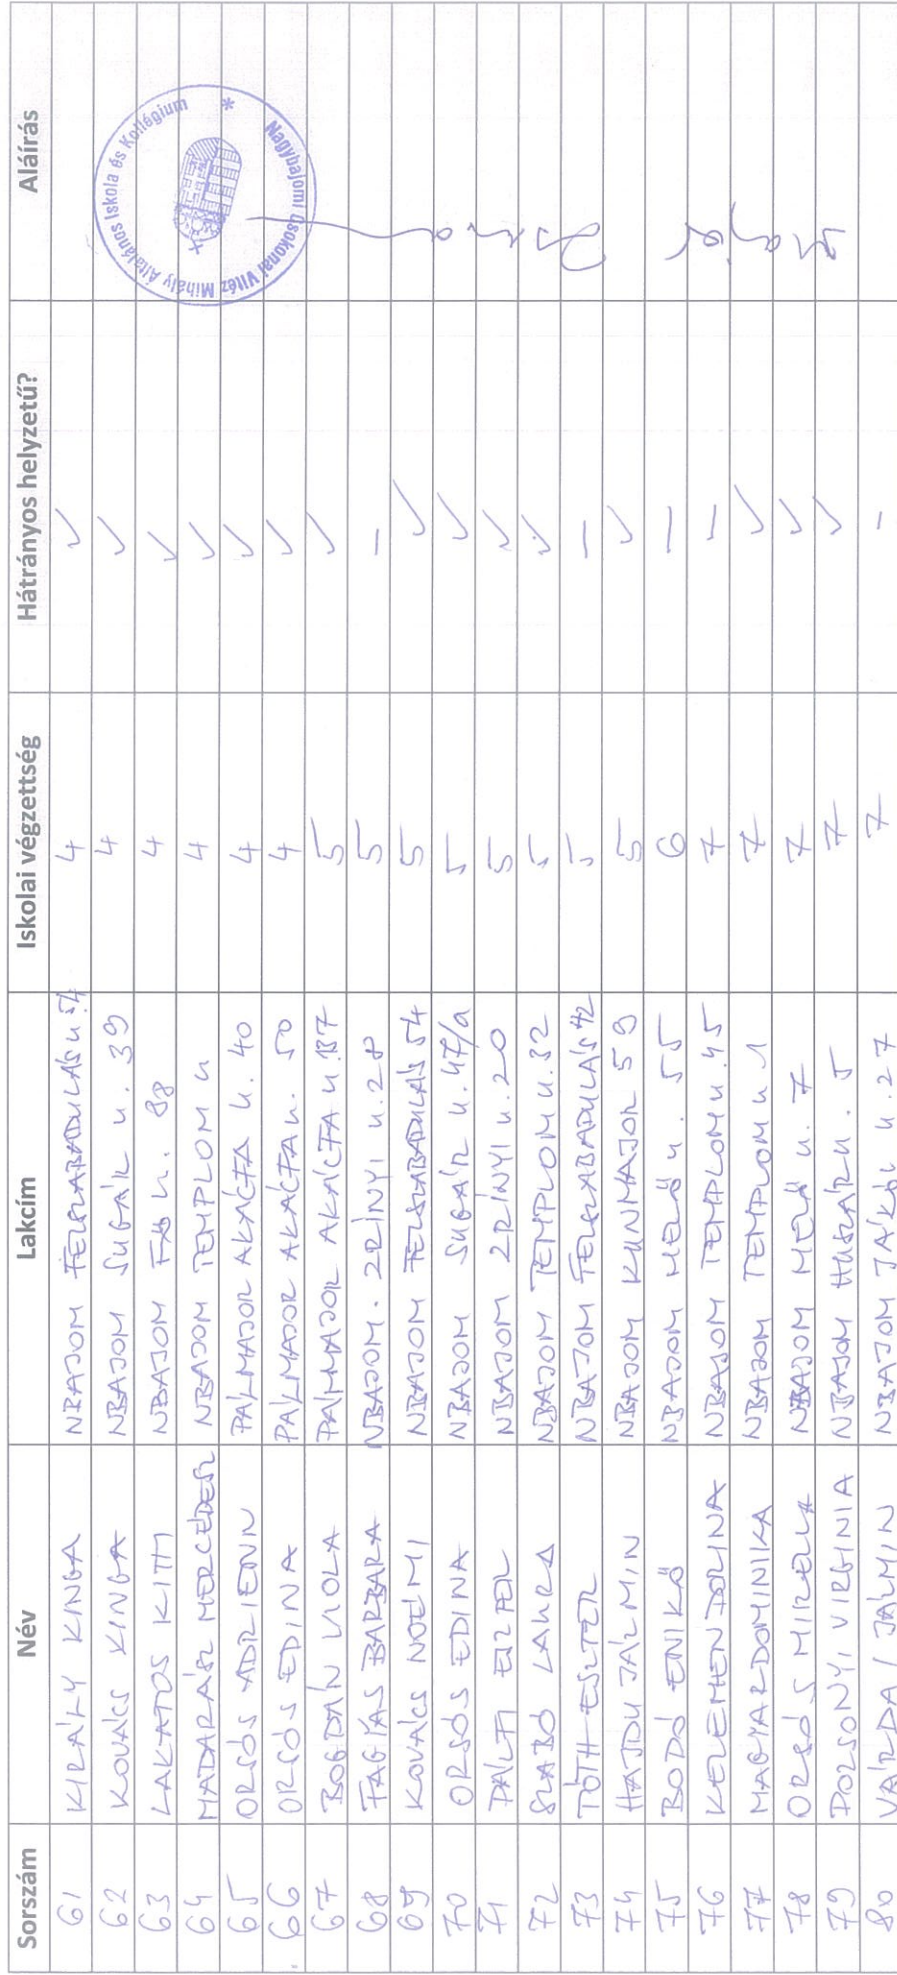 Sorszám Név Lakcím Iskolai végzettség Hátrányos helyzetű? Aláírás
61 KIRÁLY KINGA NBAJOM FELSZABADULÁS u 54 4 ✓
62 KOVÁCS KINGA NBAJOM SUGÁR u. 39 4 ✓
63 LAKATOS KITTI NBAJOM u. 88 4 ✓
64 MADARÁSZ MERCÉDESZ NBAJOM TEMPLOM u 4 ✓
65 ORSÓS ADRIENN PÁLMAJOR AKÁCFA u. 40 4 ✓
66 ORSÓS EDINA PÁLMAJOR AKÁCFA u. 50 4 ✓
67 BOGDÁN VIOLA PÁLMAJOR AKÁCFA u. 137 5 ✓
68 FAGYAS BARBARA NBAJOM. ZRÍNYI u. 28 5 –
69 KOVÁCS NOÉMI NBAJOM FELSZABADULÁS 54 5 ✓
70 ORSÓS EDINA NBAJOM SUGÁR u. 47/a 5 ✓
71 PÁLFI ESZTER NBAJOM ZRÍNYI u. 20 5 ✓
72 SZABÓ LAURA NBAJOM TEMPLOM u. 32 5 ✓
73 TÓTH ESZTER NBAJOM FELSZABADULÁS 42 5 –
74 HAJDU JÁZMIN NBAJOM KUNMAJOR 59 5 ✓
75 BODÓ ENIKŐ NBAJOM MEZŐ u. 55 6 –
76 KELEMEN DORINA NBAJOM TEMPLOM u. 45 7 –
77 MAGYAR DOMINIKA NBAJOM TEMPLOM u 1 7 ✓
78 ORSÓS MIRELLA NBAJOM MEZŐ u. 7 7 ✓
79 POZSONYI VIRGINIA NBAJOM HUSZÁR u. 5 7 ✓
80 VÁRDAI JÁZMIN NBAJOM JÁKÓI u. 27 7 –
Nagybajomi Csokonai Vitéz Mihály Általános Iskola és Kollégium *